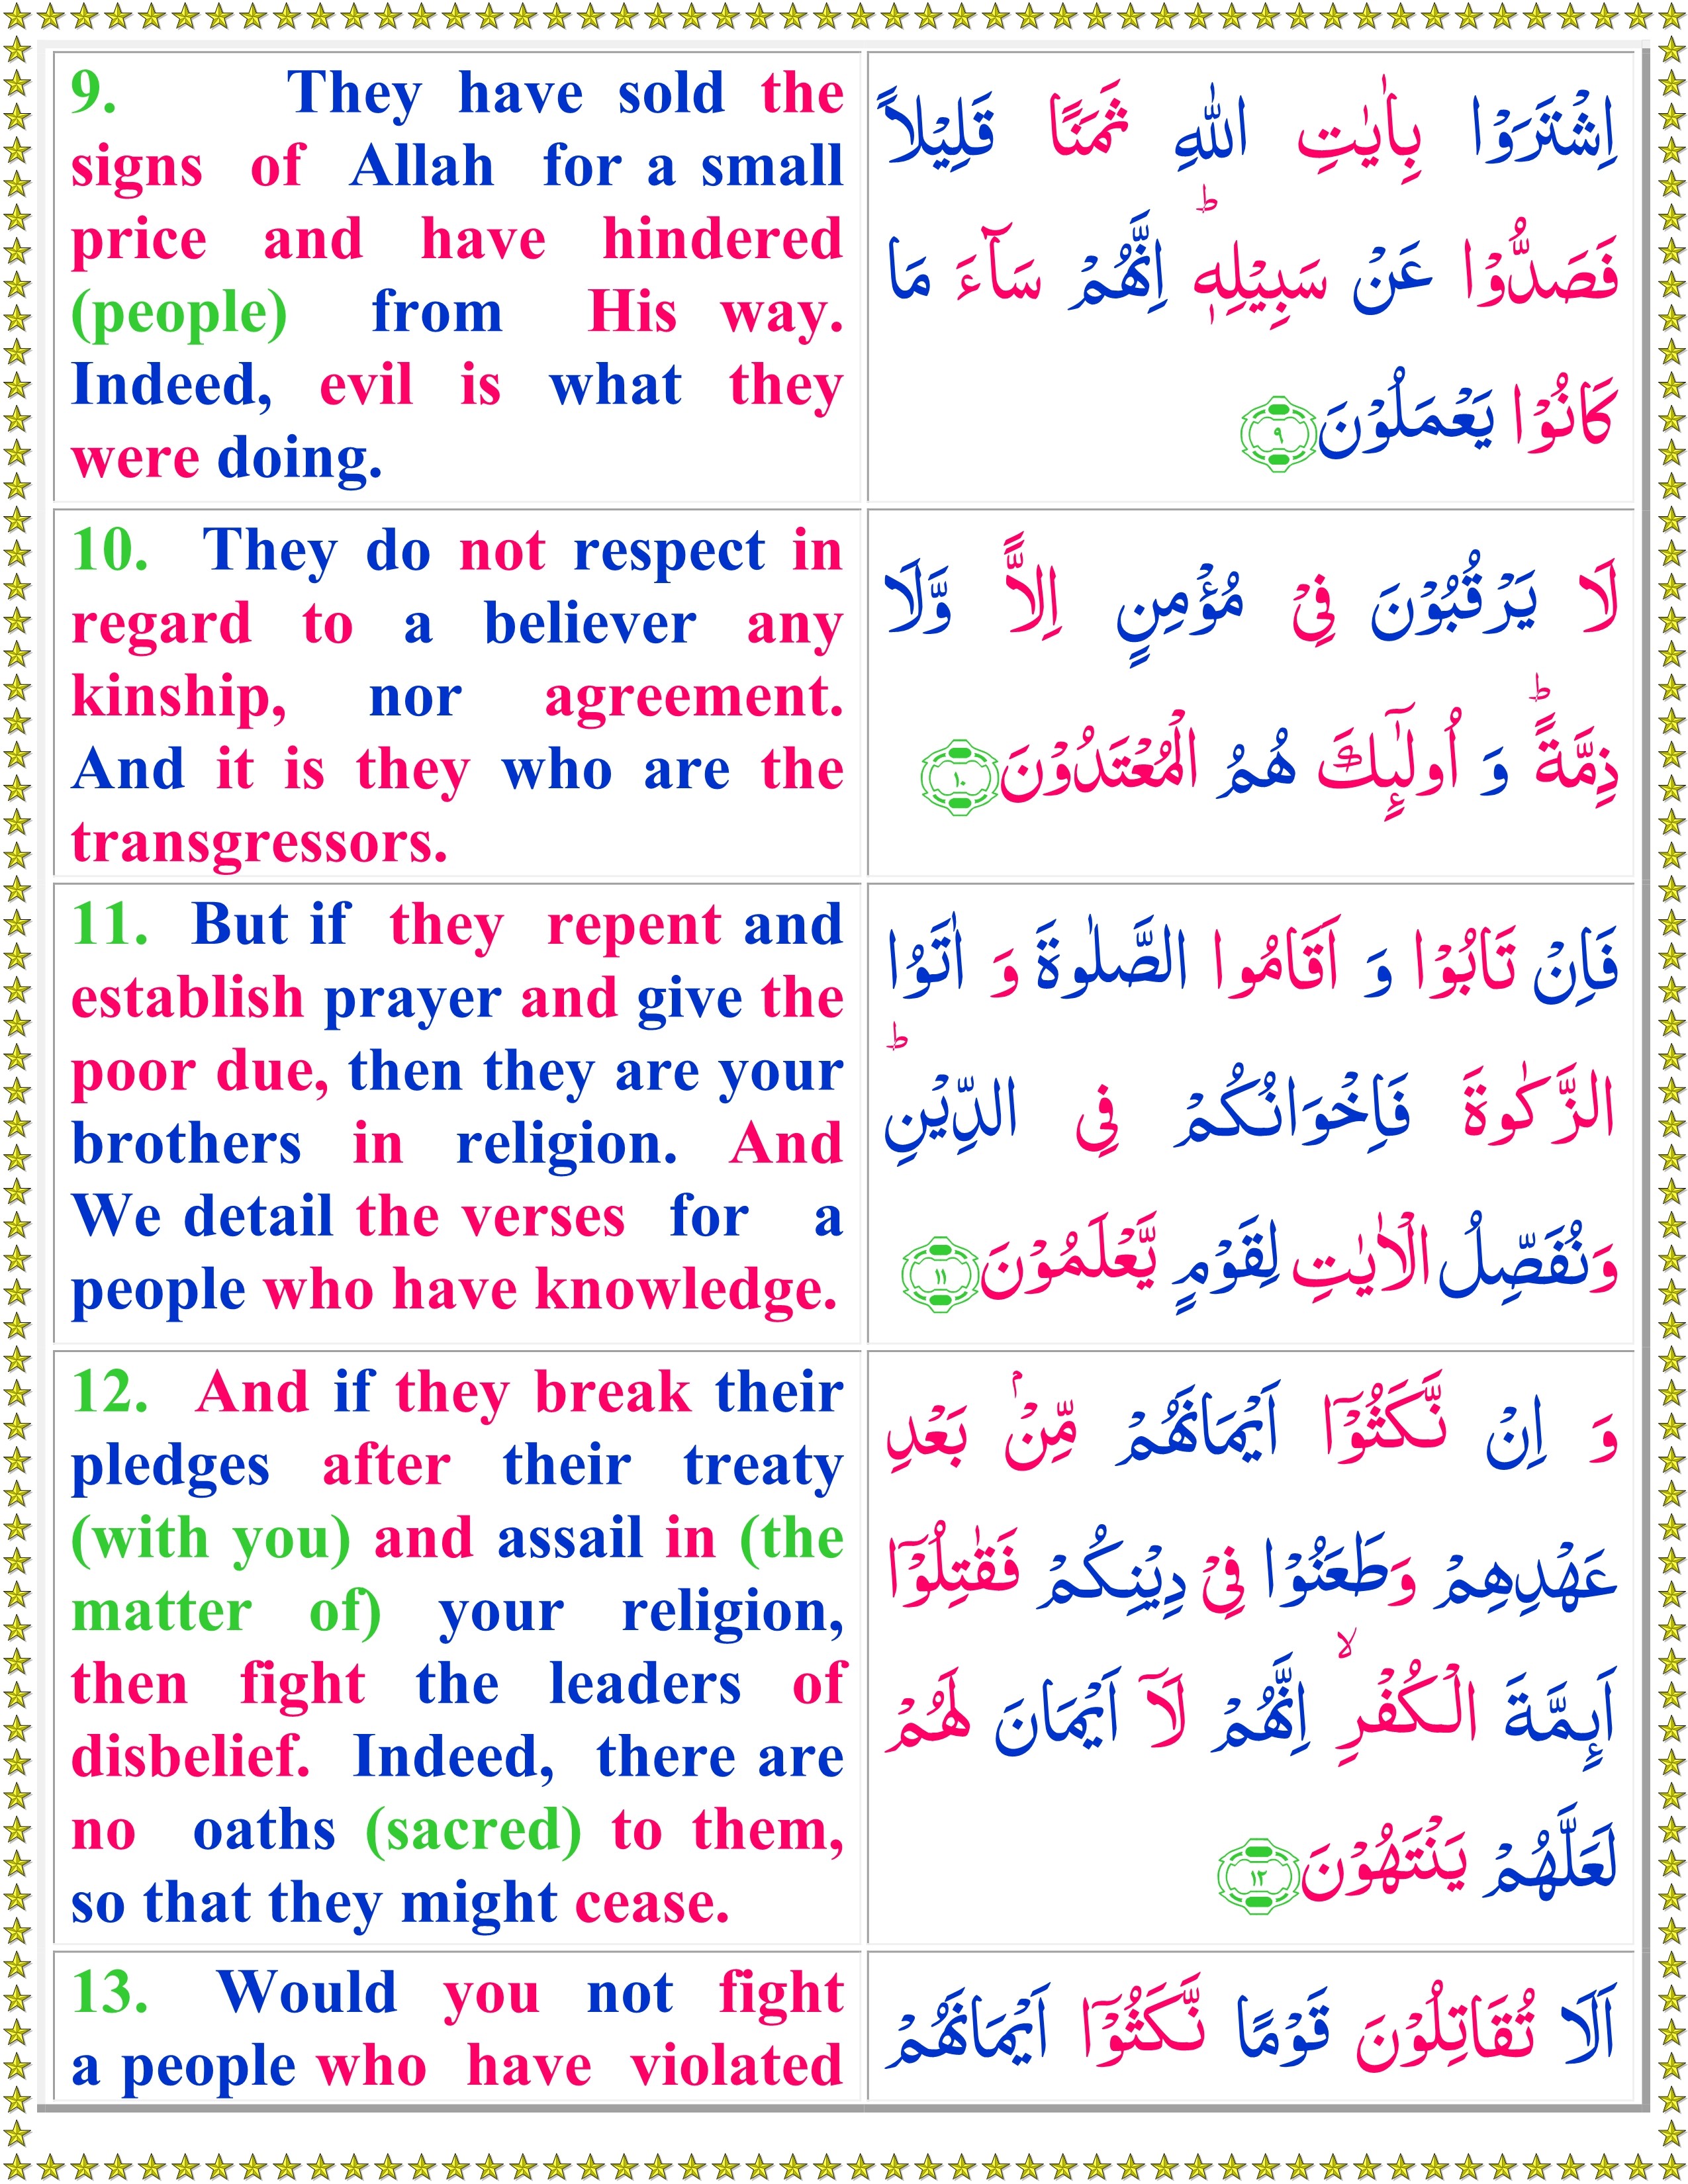 9. They have sold the
signs of Allah for a small
price and have hindered
(people) from His way.
Indeed, evil is what they
were doing.
اِشْتَرَوْا بِاٰيٰتِ اللّٰهِ ثَمَنًا قَلِيْلاً
فَصَدُّوْا عَنْ سَبِيْلِهٖ ؕ اِنَّهُمْ سَآءَ مَا
كَانُوْا يَعْمَلُوْنَ ٩
10. They do not respect in
regard to a believer any
kinship, nor agreement.
And it is they who are the
transgressors.
لَا يَرْقُبُوْنَ فِيْ مُؤْمِنٍ اِلاًّ وَّلَا
ذِمَّةً ؕ وَ اُولٰٓئِكَ هُمُ الْمُعْتَدُوْنَ ١٠
11. But if they repent and
establish prayer and give the
poor due, then they are your
brothers in religion. And
We detail the verses for a
people who have knowledge.
فَاِنْ تَابُوْا وَ اَقَامُوا الصَّلٰوةَ وَ اٰتَوُا
الزَّكٰوةَ فَاِخْوَانُكُمْ فِى الدِّيْنِ ؕ
وَنُفَصِّلُ الْاٰيٰتِ لِقَوْمٍ يَّعْلَمُوْنَ ١١
12. And if they break their
pledges after their treaty
(with you) and assail in (the
matter of) your religion,
then fight the leaders of
disbelief. Indeed, there are
no oaths (sacred) to them,
so that they might cease.
وَ اِنْ نَّكَثُوْۤا اَيْمَانَهُمْ مِّنْۢ بَعْدِ
عَهْدِهِمْ وَطَعَنُوْا فِيْ دِيْنِكُمْ فَقٰتِلُوْۤا
اَئِمَّةَ الْكُفْرِ ۙ اِنَّهُمْ لَاۤ اَيْمَانَ لَهُمْ
لَعَلَّهُمْ يَنْتَهُوْنَ ١٢
13. Would you not fight
a people who have violated
اَلَا تُقَاتِلُوْنَ قَوْمًا نَّكَثُوْۤا اَيْمَانَهُمْ